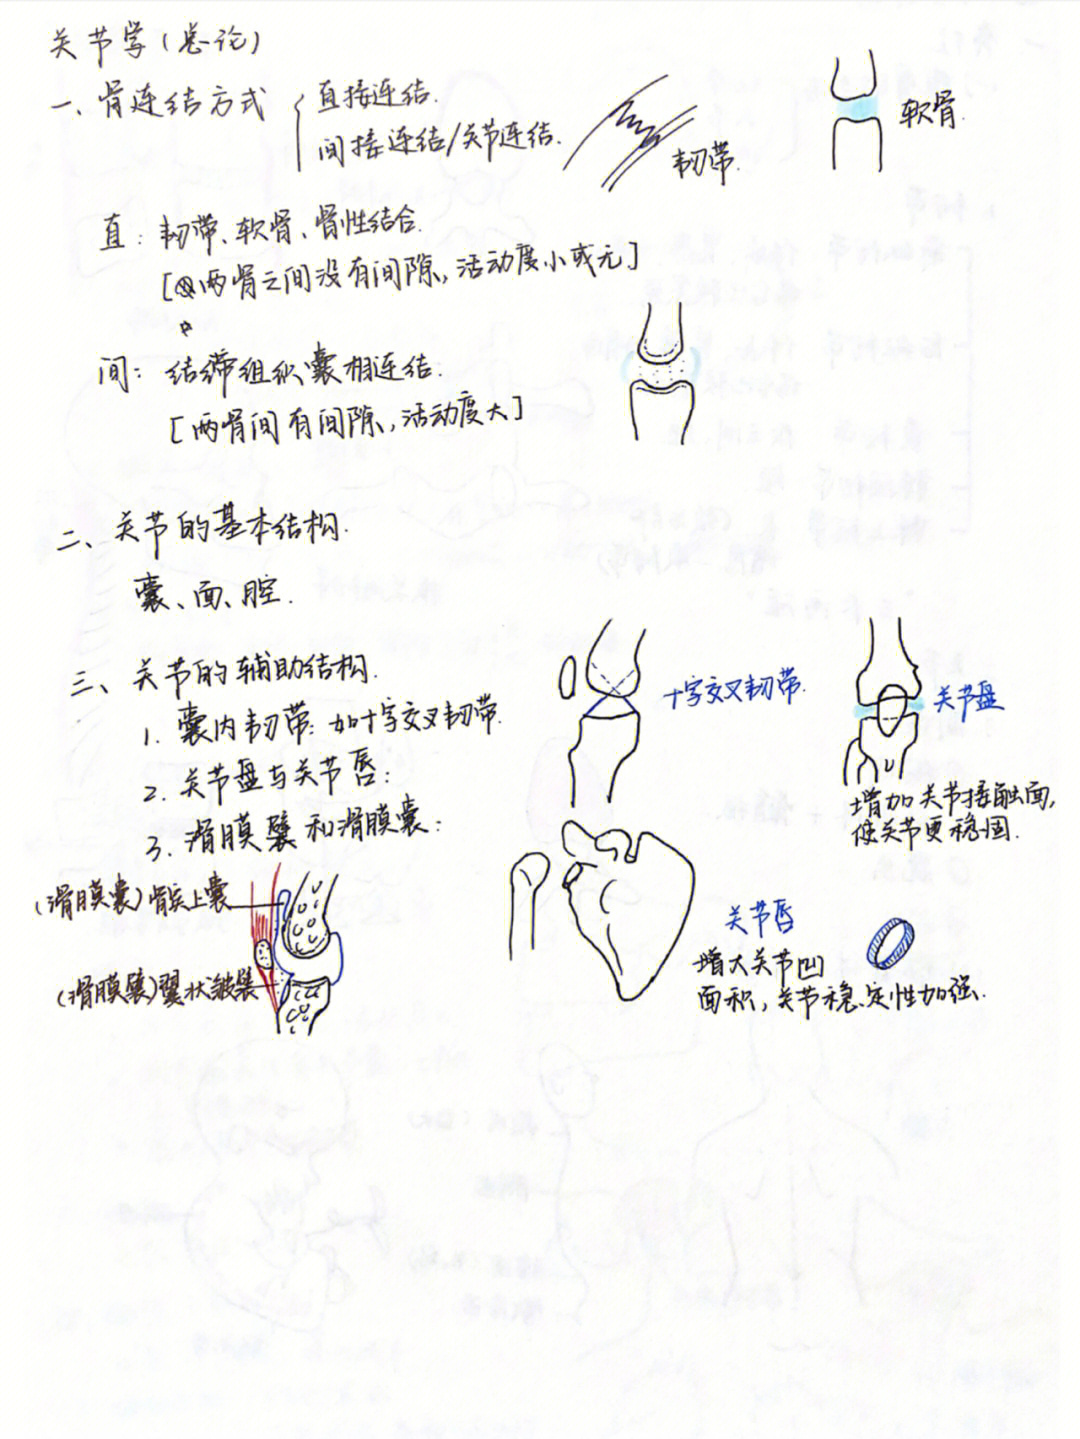 关节学(总论)
一、骨连结方式
直接连结.
间接连结/关节连结.
韧带.
软骨.
直: 韧带、软骨、骨性结合.
[两骨之间没有间隙,活动度小或无]
间: 结缔组织囊相连结.
[两骨间有间隙,活动度大]
二、关节的基本结构.
囊、面、腔.
三、关节的辅助结构.
1. 囊内韧带: 如十字交叉韧带.
2. 关节盘与关节唇:
3. 滑膜襞和滑膜囊:
十字交叉韧带.
关节盘
增加关节接触面,
使关节更稳固.
(滑膜囊)髌上囊
(滑膜襞)翼状皱襞
关节唇
增大关节凹
面积,关节稳定性加强.